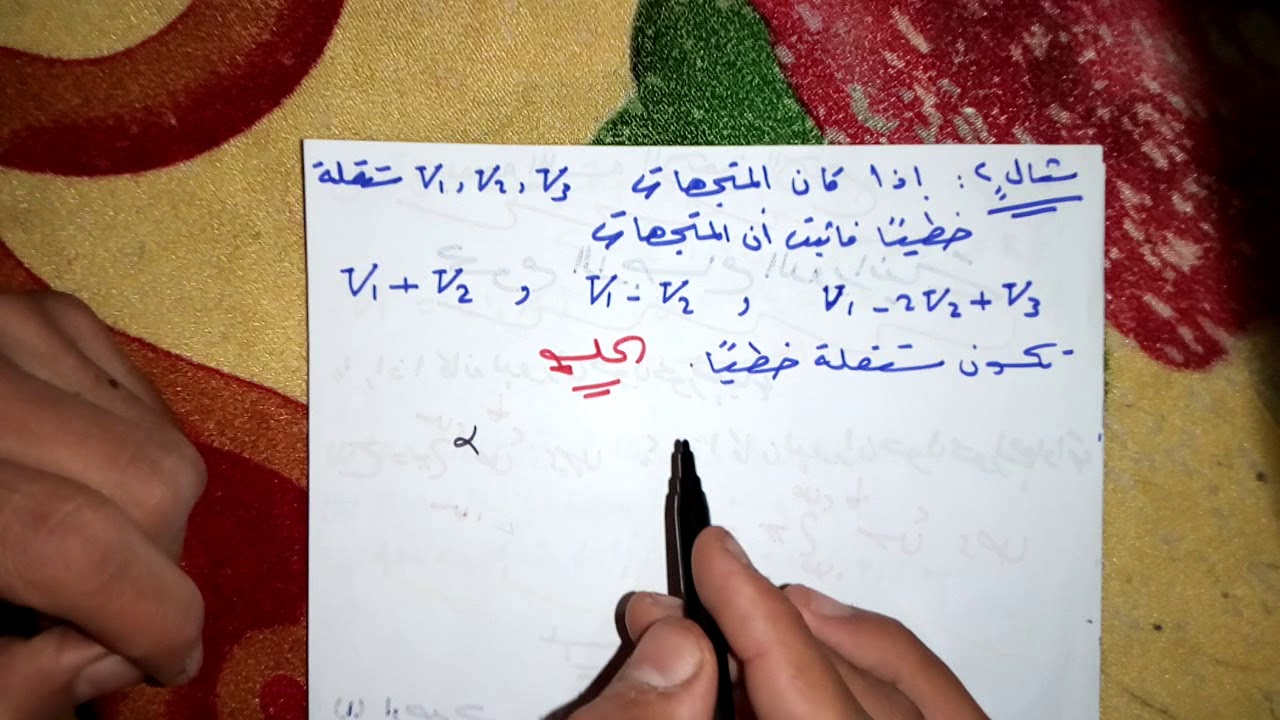 مثال ٢: إذا كان المتجهات V1, V2, V3 مستقلة
خطيًا فاثبت أن المتجهات
V1 + V2 , V1 - V2 , V1 - 2V2 + V3
تكون مستقلة خطيًا.
الحلــ
α